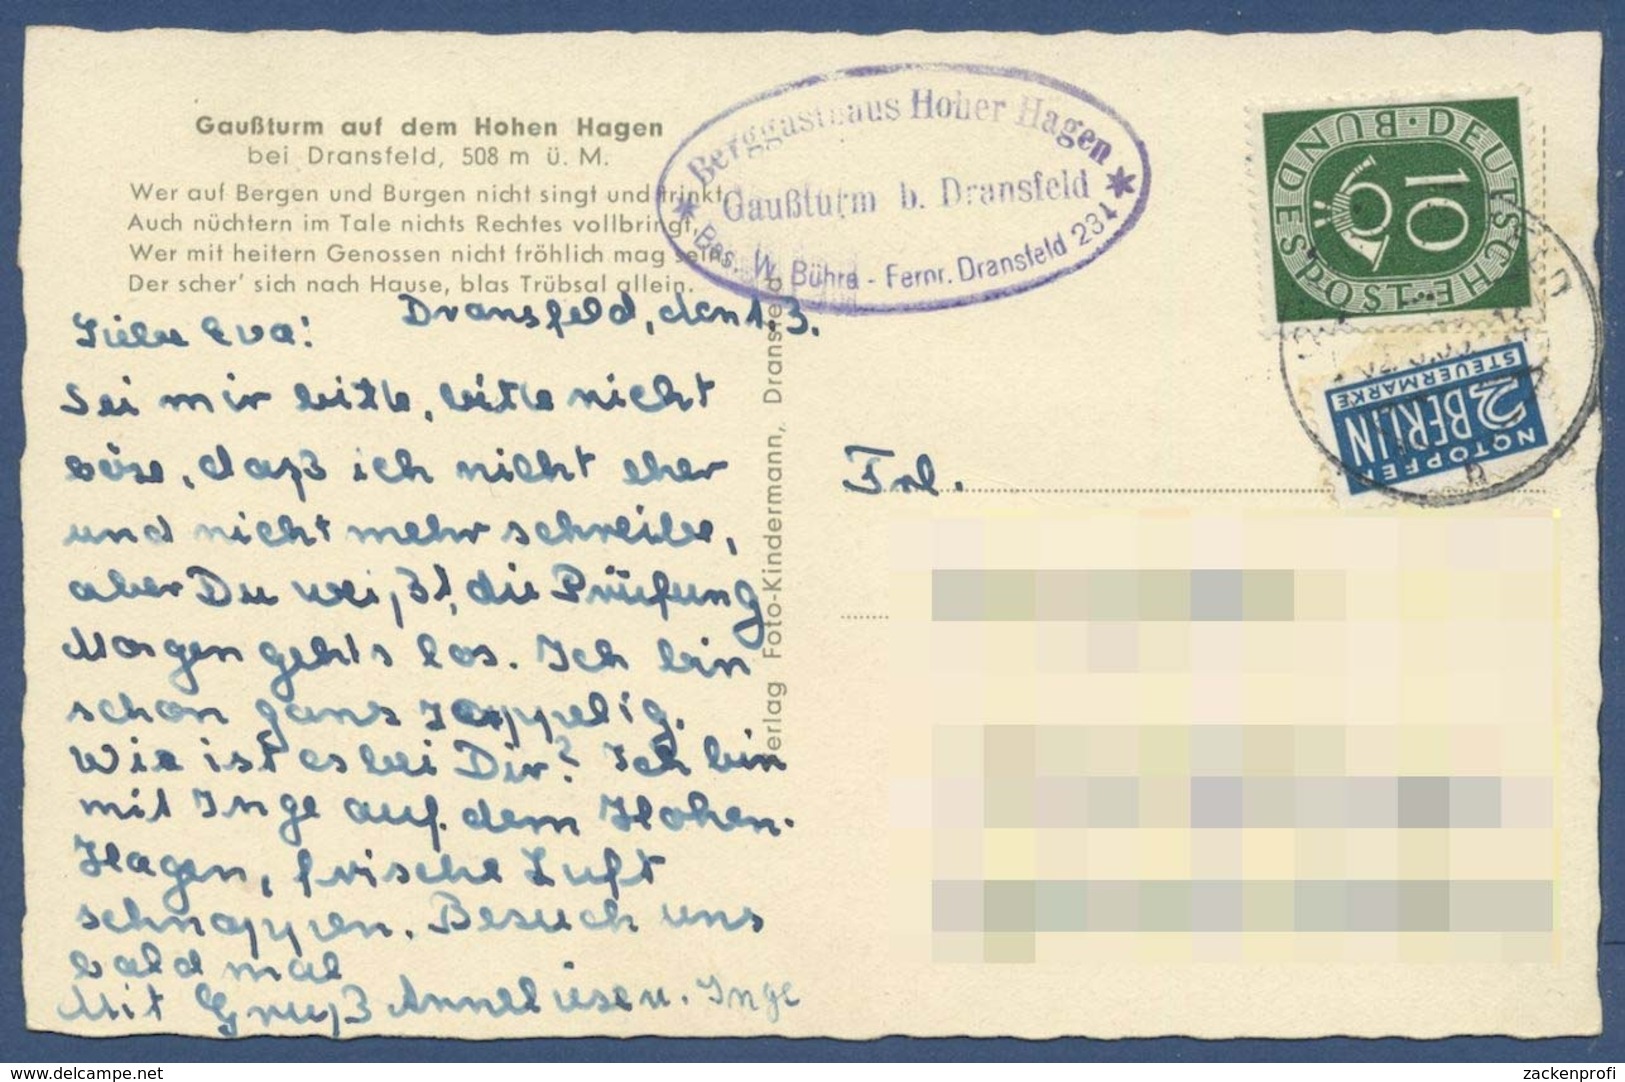 Gaußturm auf dem Hohen Hagen
bei Dransfeld, 508 m ü. M.
Wer auf Bergen und Burgen nicht singt und trinkt,
Auch nüchtern im Tale nichts Rechtes vollbringt,
Wer mit heitern Genossen nicht fröhlich mag sein,
Der scher' sich nach Hause, blas Trübsal allein.
Berggasthaus Hoher Hagen
Gaußturm b. Dransfeld
Bes. W. Bührə - Fernr. Dransfeld 231
DEUTSCHE BUNDESPOST
10
2 NOTOPFER
BERLIN
STEUERMARKE
Dransfeld, den 1. 3.
Liebe Eva!
Sei mir bitte, bitte nicht
böse, daß ich nicht eher
und nicht mehr schreibe,
aber Du weißt, die Prüfung
Morgen gehts los. Ich bin
schon ganz zappelig.
Wie ist es bei Dir? Ich bin
mit Inge auf dem Hohen-
Hagen, frische Luft
schnappen. Besuch uns
bald mal
Mit Gruß Anneliese u. Inge
Verlag Foto-Kindermann, Dransfeld
Frl.
delcampe.net
zackenprofi